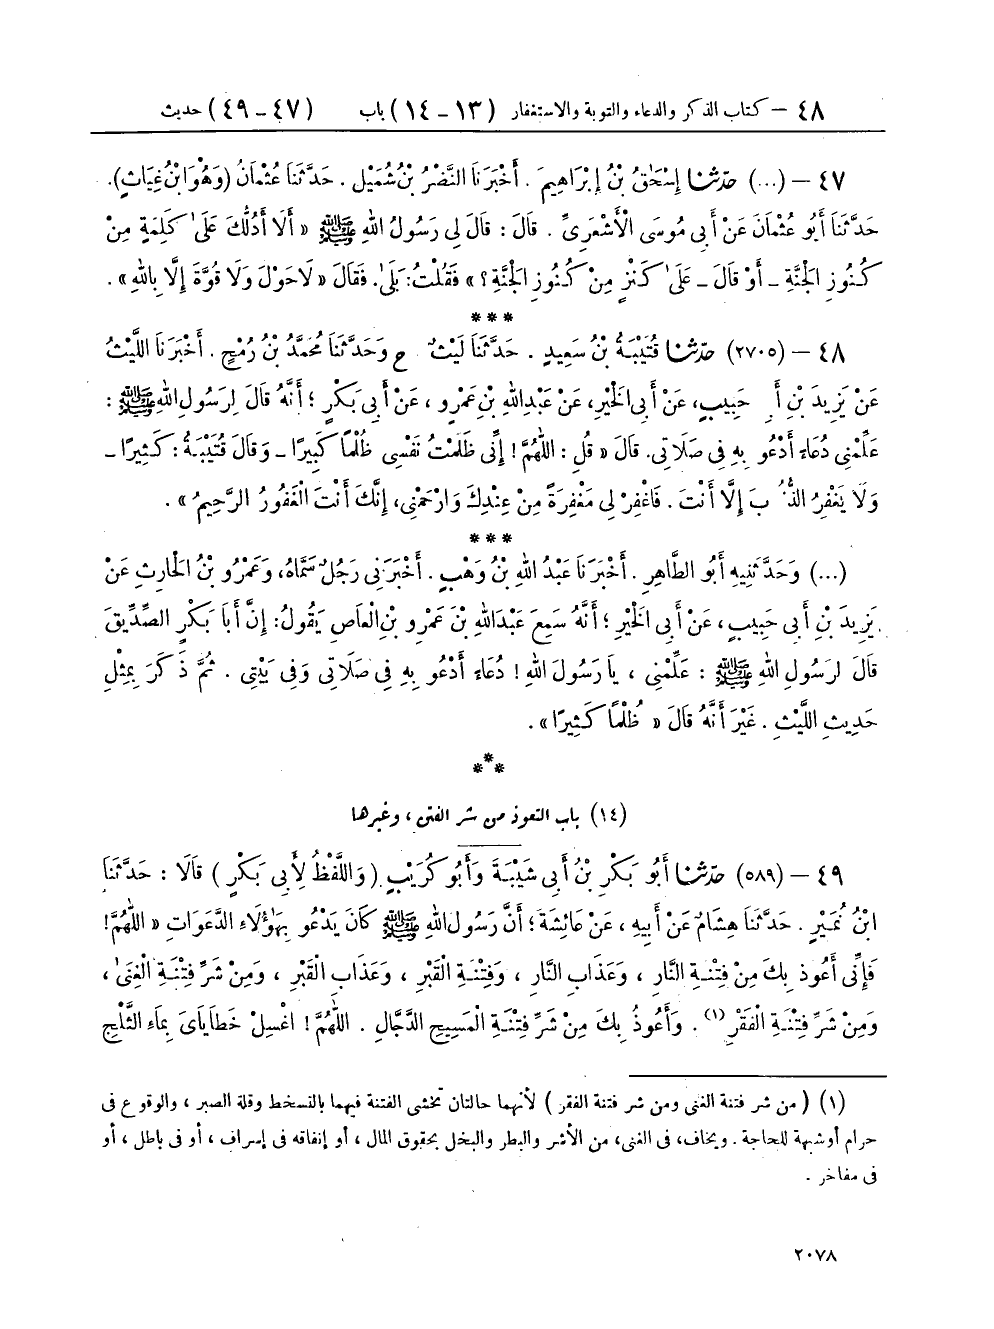 ٤٨ – كتاب الذكر والدعاء والتوبة والاستغفار (١٣ – ١٤) باب (٤٧ – ٤٩) حديث
٤٧ – (...) حدّثنا إِسْحَٰقُ بْنُ إِبْرَاهِيمَ . أَخْبَرَنَا النَّضْرُ بْنُ شُمَيْلٍ . حَدَّثَنَا عُثْمَانُ (وَهُوَ ابْنُ غِيَاثٍ).
حَدَّثَنَا أَبُو عُثْمَانَ عَنْ أَبِي مُوسَى الْأَشْعَرِيِّ . قَالَ : قَالَ لِي رَسُولُ اللهِ ﷺ « أَلَا أَدُلُّكَ عَلَىٰ كَلِمَةٍ مِنْ
كُنُوزِ الْجَنَّةِ – أَوْ قَالَ – عَلَىٰ كَنْزٍ مِنْ كُنُوزِ الْجَنَّةِ ؟ » فَقُلْتُ : بَلَىٰ. فَقَالَ « لَا حَوْلَ وَلَا قُوَّةَ إِلَّا بِاللهِ » .
***
٤٨ – (٢٧٠٥) حدّثنا قُتَيْبَةُ بْنُ سَعِيدٍ . حَدَّثَنَا لَيْثٌ . ح وَحَدَّثَنَا مُحَمَّدُ بْنُ رُمْحٍ . أَخْبَرَنَا اللَّيْثُ
عَنْ يَزِيدَ بْنِ أَ حَبِيبٍ، عَنْ أَبِي الْخَيْرِ، عَنْ عَبْدِ اللهِ بْنِ عَمْرٍو ، عَنْ أَبِي بَكْرٍ ؛ أَنَّهُ قَالَ لِرَسُولِ اللهِ ﷺ :
عَلِّمْنِي دُعَاءً أَدْعُو بِهِ فِي صَلَاتِي. قَالَ « قُلِ : اللّٰهُمَّ ! إِنِّي ظَلَمْتُ نَفْسِي ظُلْمًا كَبِيرًا – وَقَالَ قُتَيْبَةُ : كَثِيرًا –
وَلَا يَغْفِرُ الذُّ بَ إِلَّا أَنْتَ . فَاغْفِرْ لِي مَغْفِرَةً مِنْ عِنْدِكَ وَارْحَمْنِي، إِنَّكَ أَنْتَ الْغَفُورُ الرَّحِيمُ » .
***
(...) وَحَدَّثَنِيهِ أَبُو الطَّاهِرِ . أَخْبَرَنَا عَبْدُ اللهِ بْنُ وَهْبٍ . أَخْبَرَنِي رَجُلٌ سَمَّاهُ، وَعَمْرُو بْنُ الْحَارِثِ عَنْ
يَزِيدَ بْنِ أَبِي حَبِيبٍ، عَنْ أَبِي الْخَيْرِ ؛ أَنَّهُ سَمِعَ عَبْدَ اللهِ بْنَ عَمْرِو بْنِ الْعَاصِ يَقُولُ : إِنَّ أَبَا بَكْرٍ الصِّدِّيقَ
قَالَ لِرَسُولِ اللهِ ﷺ : عَلِّمْنِي ، يَا رَسُولَ اللهِ ! دُعَاءً أَدْعُو بِهِ فِي صَلَاتِي وَفِي بَيْتِي . ثُمَّ ذَكَرَ بِمِثْلِ
حَدِيثِ اللَّيْثِ . غَيْرَ أَنَّهُ قَالَ « ظُلْمًا كَثِيرًا » .
***
(١٤) باب التعوذ من شر الفتن ، وغيرها
٤٩ – (٥٨٩) حدّثنا أَبُو بَكْرِ بْنُ أَبِي شَيْبَةَ وَأَبُو كُرَيْبٍ (وَاللَّفْظُ لِأَبِي بَكْرٍ) قَالَا : حَدَّثَنَا
ابْنُ نُمَيْرٍ . حَدَّثَنَا هِشَامٌ عَنْ أَبِيهِ ، عَنْ عَائِشَةَ ؛ أَنَّ رَسُولَ اللهِ ﷺ كَانَ يَدْعُو بِهَٰؤُلَاءِ الدَّعَوَاتِ « اللّٰهُمَّ !
فَإِنِّي أَعُوذُ بِكَ مِنْ فِتْنَةِ النَّارِ ، وَعَذَابِ النَّارِ ، وَفِتْنَةِ الْقَبْرِ ، وَعَذَابِ الْقَبْرِ ، وَمِنْ شَرِّ فِتْنَةِ الْغِنَىٰ ،
وَمِنْ شَرِّ فِتْنَةِ الْفَقْرِ (١) . وَأَعُوذُ بِكَ مِنْ شَرِّ فِتْنَةِ الْمَسِيحِ الدَّجَّالِ . اللّٰهُمَّ ! اغْسِلْ خَطَايَايَ بِمَاءِ الثَّلْجِ
(١) ( من شر فتنة الغنى ومن شر فتنة الفقر ) لأنهما حالتان تخشى الفتنة فيهما بالتسخط وقلة الصبر ، والوقوع فى
حرام أو شبهة للحاجة . ويخاف، فى الغنى، من الأشر والبطر والبخل بحقوق المال ، أو إنفاقه فى إسراف ، أو فى باطل ، أو
فى مفاخر .
٢٠٧٨